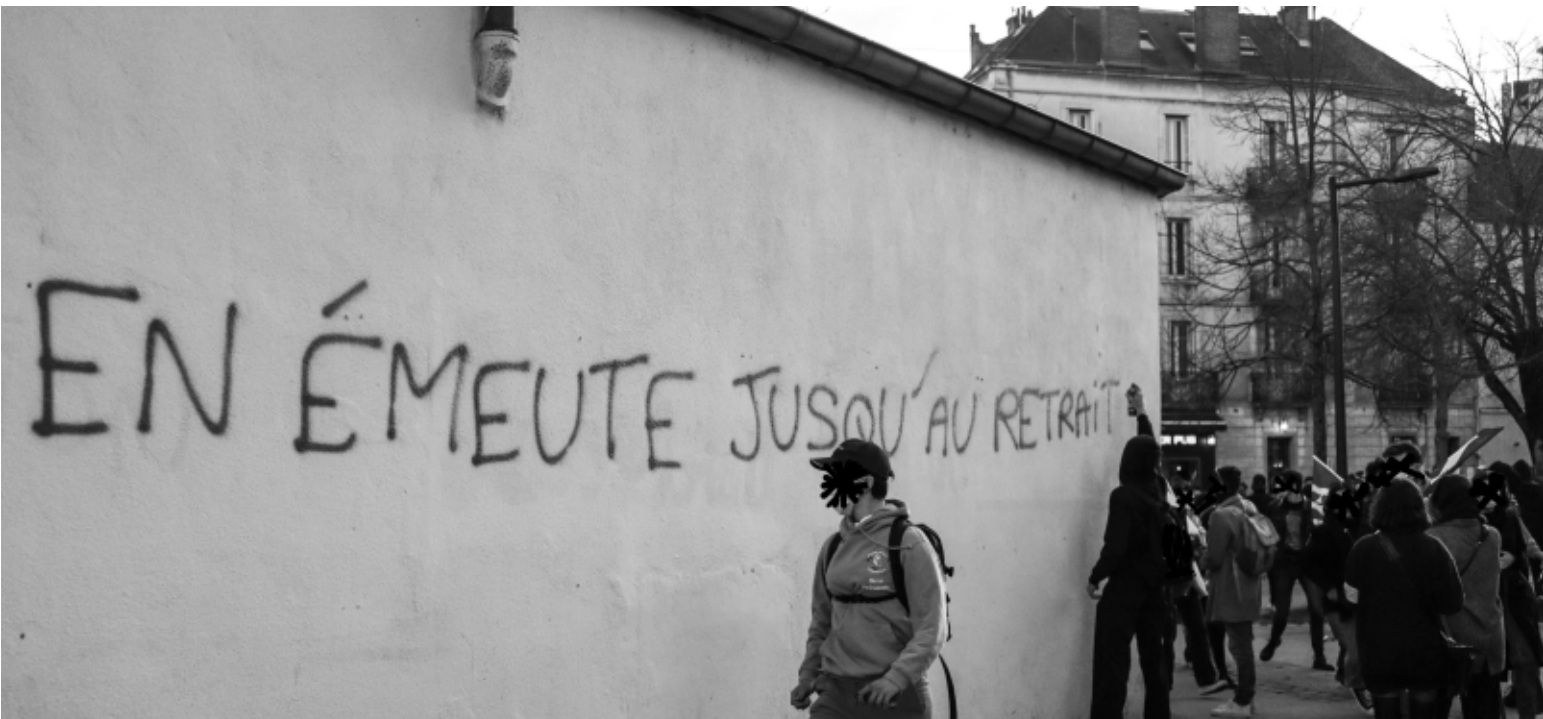 EN ÉMEUTE JUSQU'AU RETRAIT
PUB